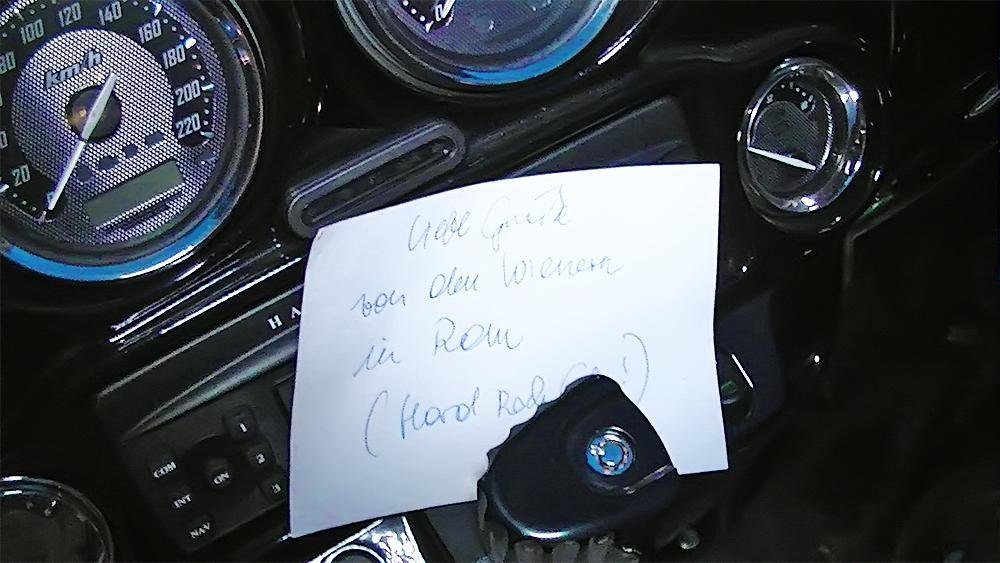 80 100 120 140 160 180 200 220
km/h
20
Liebe Grüße
von den Wienern
in Rom
(Hard Rock !)
HA
1
COM 2
ON
INT 3
NAV